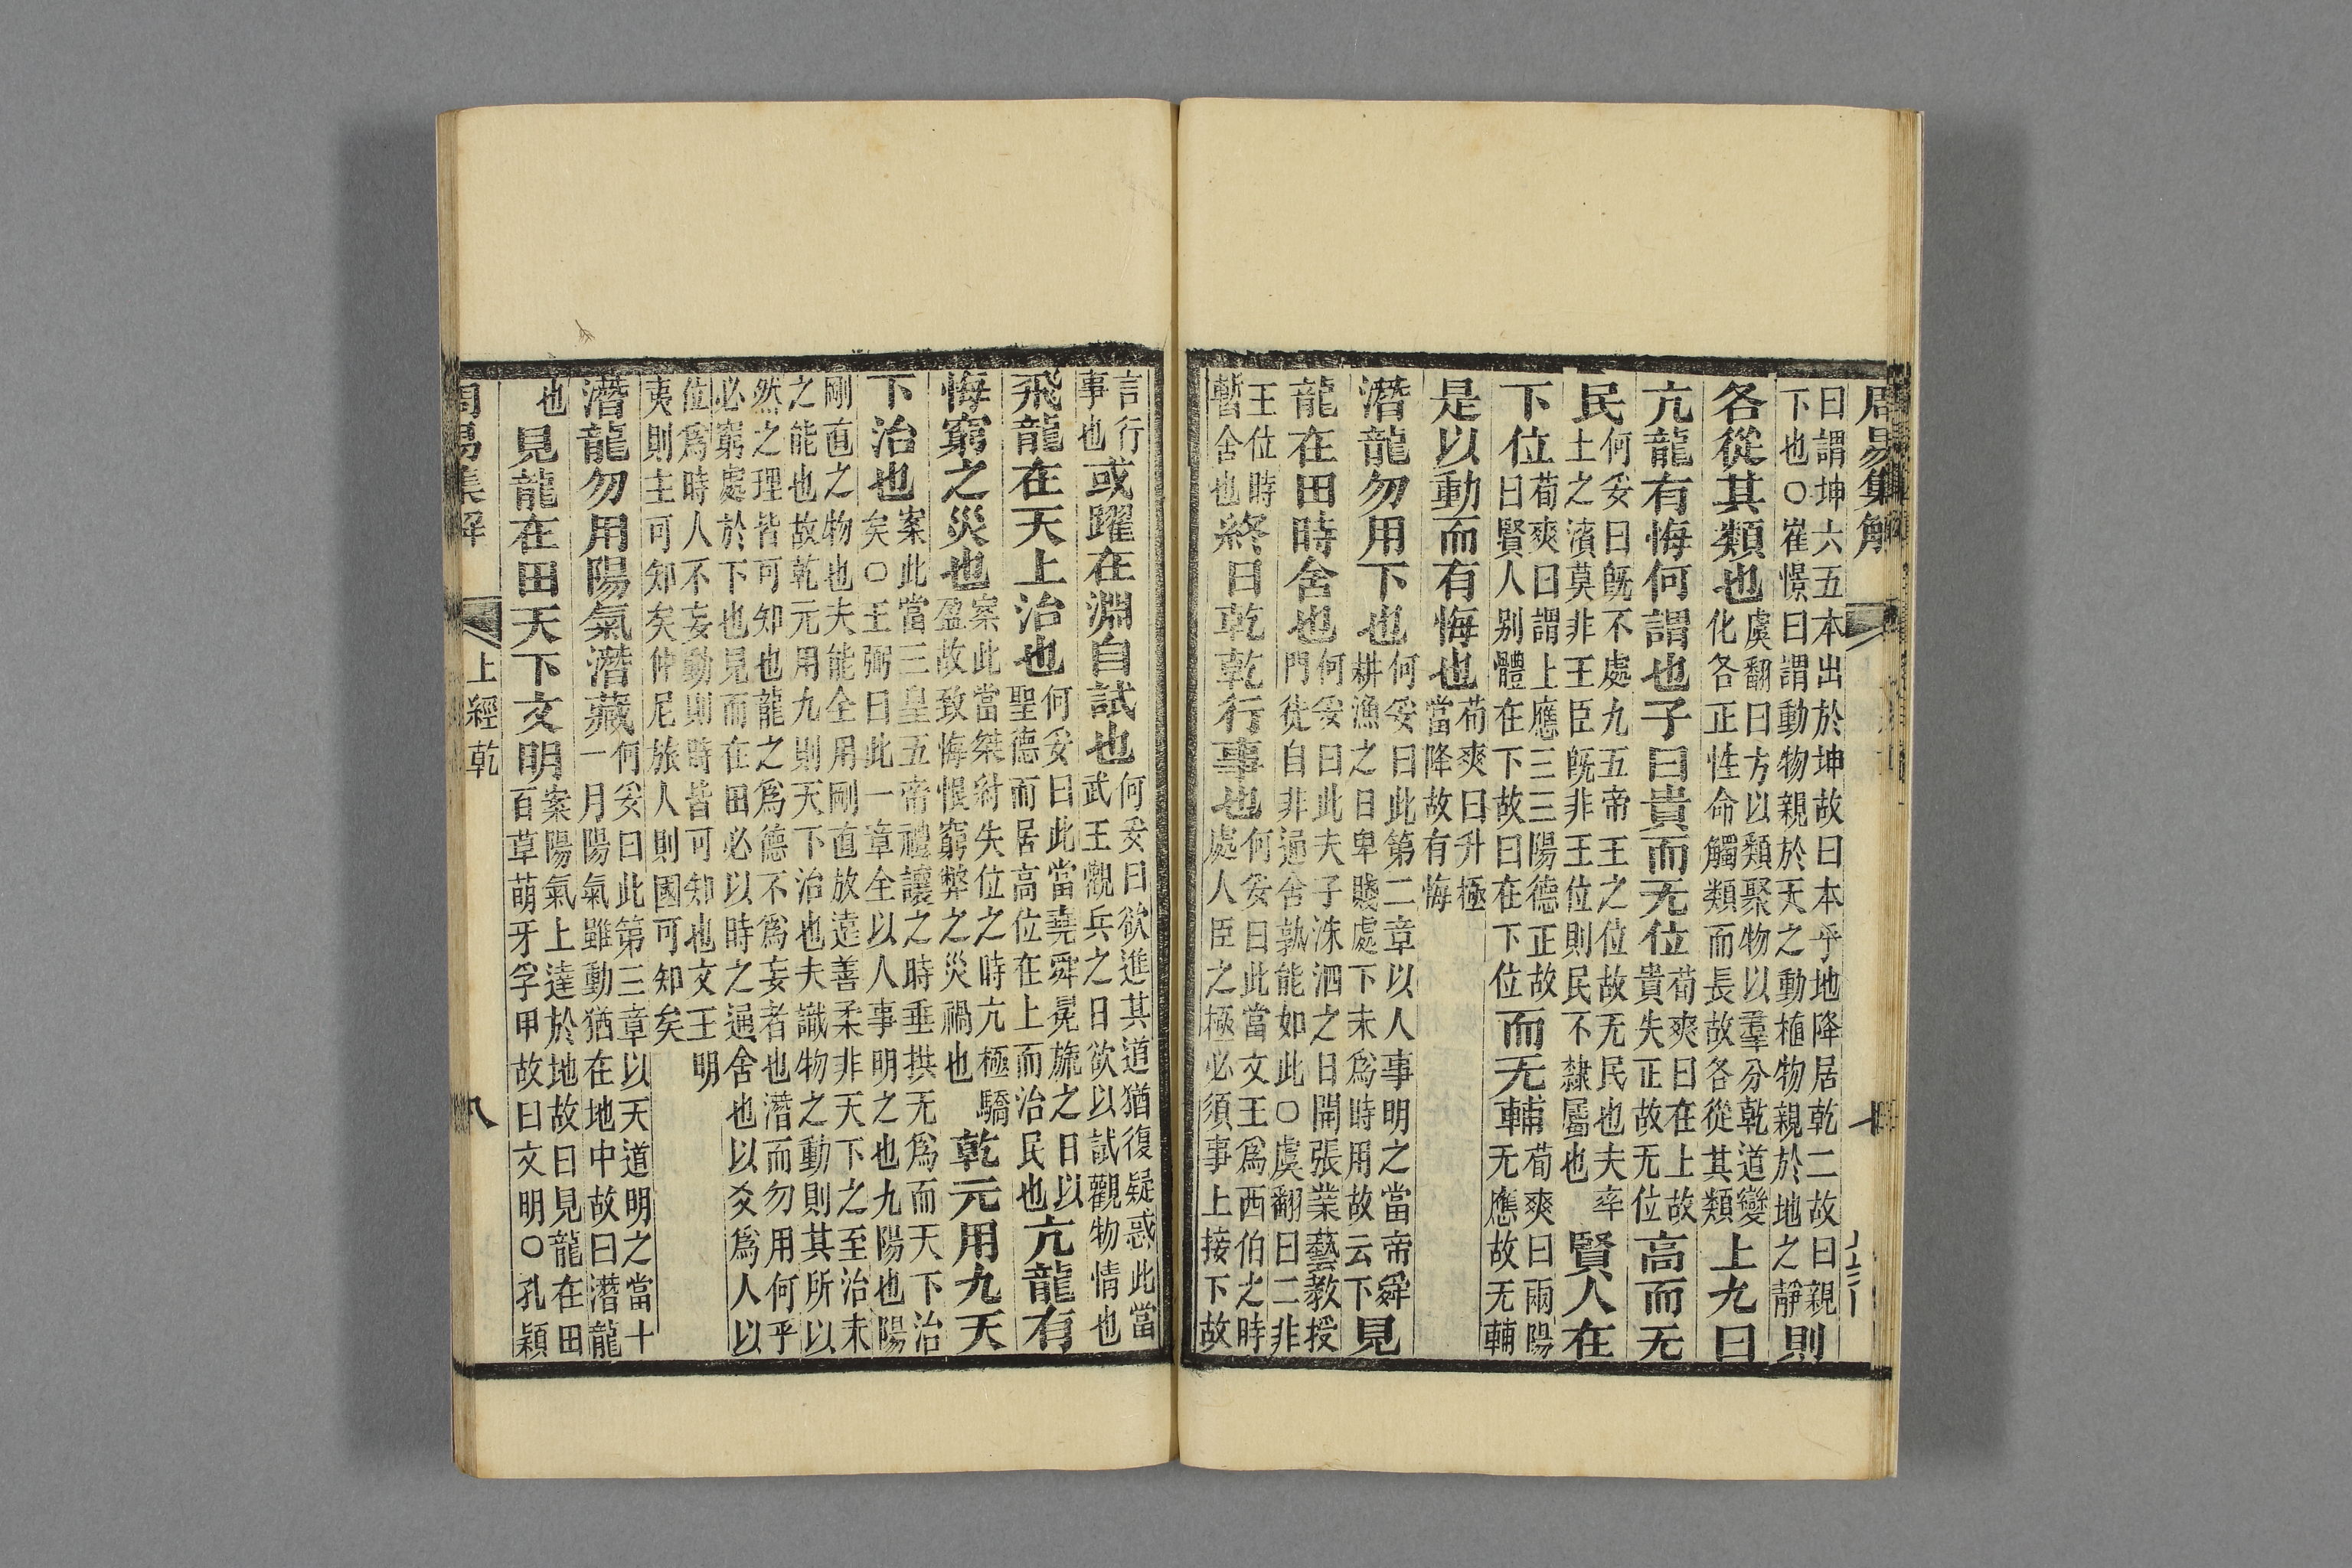 周易集解
曰謂坤六五本出於坤故曰本乎地降居乾二故曰親
下也○崔憬曰謂動物親於天之動植物親於地之靜則
各從其類也虞翻曰方以類聚物以羣分乾道變
化各正性命觸類而長故各從其類上九曰
亢龍有悔何謂也子曰貴而无位荀爽曰在上故
貴失正故无位高而无
民何妥曰旣不處九五帝王之位故无民也夫率
土之濱莫非王臣旣非王位則民不隸屬也賢人在
下位荀爽曰謂上應三三陽德正故
曰賢人別體在下故曰在下位而无輔荀爽曰兩陽
无應故无輔
是以動而有悔也荀爽曰升極
當降故有悔
潛龍勿用下也何妥曰此第二章以人事明之當帝舜
耕漁之日卑賤處下未爲時用故云下見
龍在田時舍也何妥曰此夫子洙泗之日開張業藝教授
門徒自非通舍孰能如此○虞翻曰二非
王位時
暫舍也終日乾乾行事也何妥曰此當文王爲西伯之時
處人臣之極必須事上接下故
言行
事也或躍在淵自試也何妥曰欲進其道猶復疑惑此當
武王觀兵之日欲以試觀物情也
飛龍在天上治也何妥曰此當堯舜冕旒之日以
聖德而居高位在上而治民也亢龍有
悔窮之災也案此當桀紂失位之時亢極驕
盈故致悔恨窮斃之災禍也乾元用九天
下治也案此當三皇五帝禮讓之時垂拱无爲而天下治
矣○王弼曰此一章全以人事明之也九陽也陽
剛直之物也夫能全用剛直放遠善柔非天下之至治未
之能也故乾元用九則天下治也夫識物之動則其所以
然之理皆可知也龍之爲德不爲妄者也潛而勿用何乎
必窮處於下也見而在田必以時之通舍也以爻爲人以
位爲時人不妄動則時皆可知也文王明
夷則主可知矣仲尼旅人則國可知矣
潛龍勿用陽氣潛藏何妥曰此第三章以天道明之當十
一月陽氣雖動猶在地中故曰潛龍
也見龍在田天下文明案陽氣上達於地故曰見龍在田
百草萌牙孚甲故曰文明○孔穎
周易集解 上經乾 八